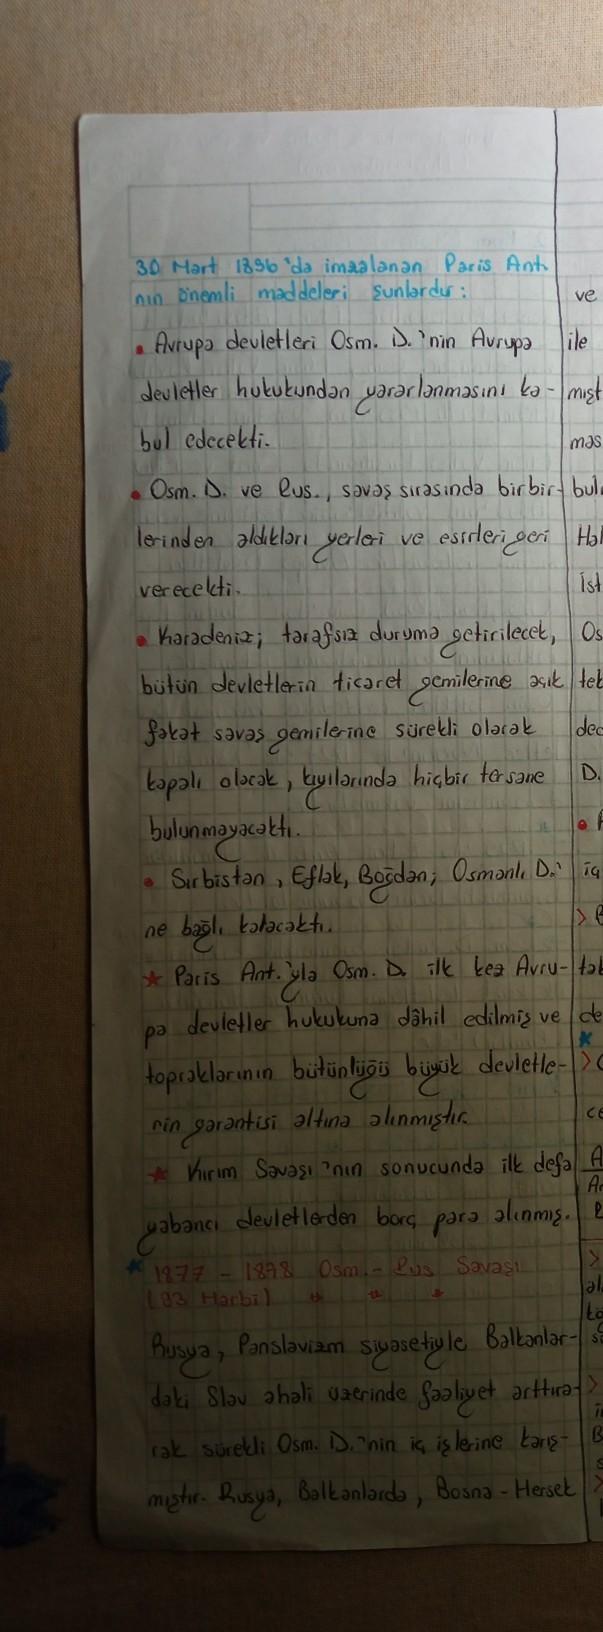 30 Mart 1856'da imzalanan Paris Ant.
nın önemli maddeleri şunlardır:
• Avrupa devletleri Osm. D.'nin Avrupa
devletler hukukundan yararlanmasını ka-
bul edecekti.
• Osm. D. ve Rus., savaş sırasında birbir-
lerinden aldıkları yerleri ve esirleri geri
verecekti.
• Karadeniz; tarafsız duruma getirilecek,
bütün devletlerin ticaret gemilerine açık
fakat savaş gemilerine sürekli olarak
kapalı olacak, kıyılarında hiçbir tersane
bulunmayacaktı.
• Sırbistan, Eflak, Boğdan; Osmanlı D.'
ne bağlı kalacaktı.
★ Paris Ant.'yla Osm. D. ilk kez Avru-
pa devletler hukukuna dâhil edilmiş ve
topraklarının bütünlüğü büyük devletle-
rin garantisi altına alınmıştır.
★ Kırım Savaşı'nın sonucunda ilk defa
yabancı devletlerden borç para alınmış.
★ 1877 - 1878 Osm. - Rus Savaşı
(93 Harbi)
Rusya, Panslavizm siyasetiyle Balkanlar-
daki Slav ahali üzerinde faaliyet arttıra-
rak sürekli Osm. D.'nin iç işlerine karış-
mıştır. Rusya, Balkanlarda, Bosna - Hersek
ve
ile
mışt
mas
bul
Hal
İst
Os
tek
dec
D.